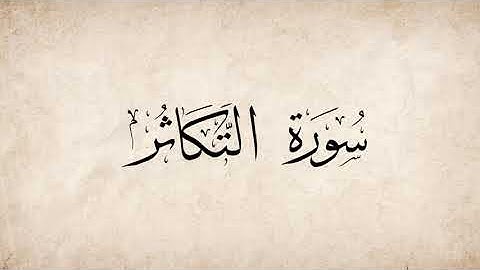 سُورَة التَّكَاثُر